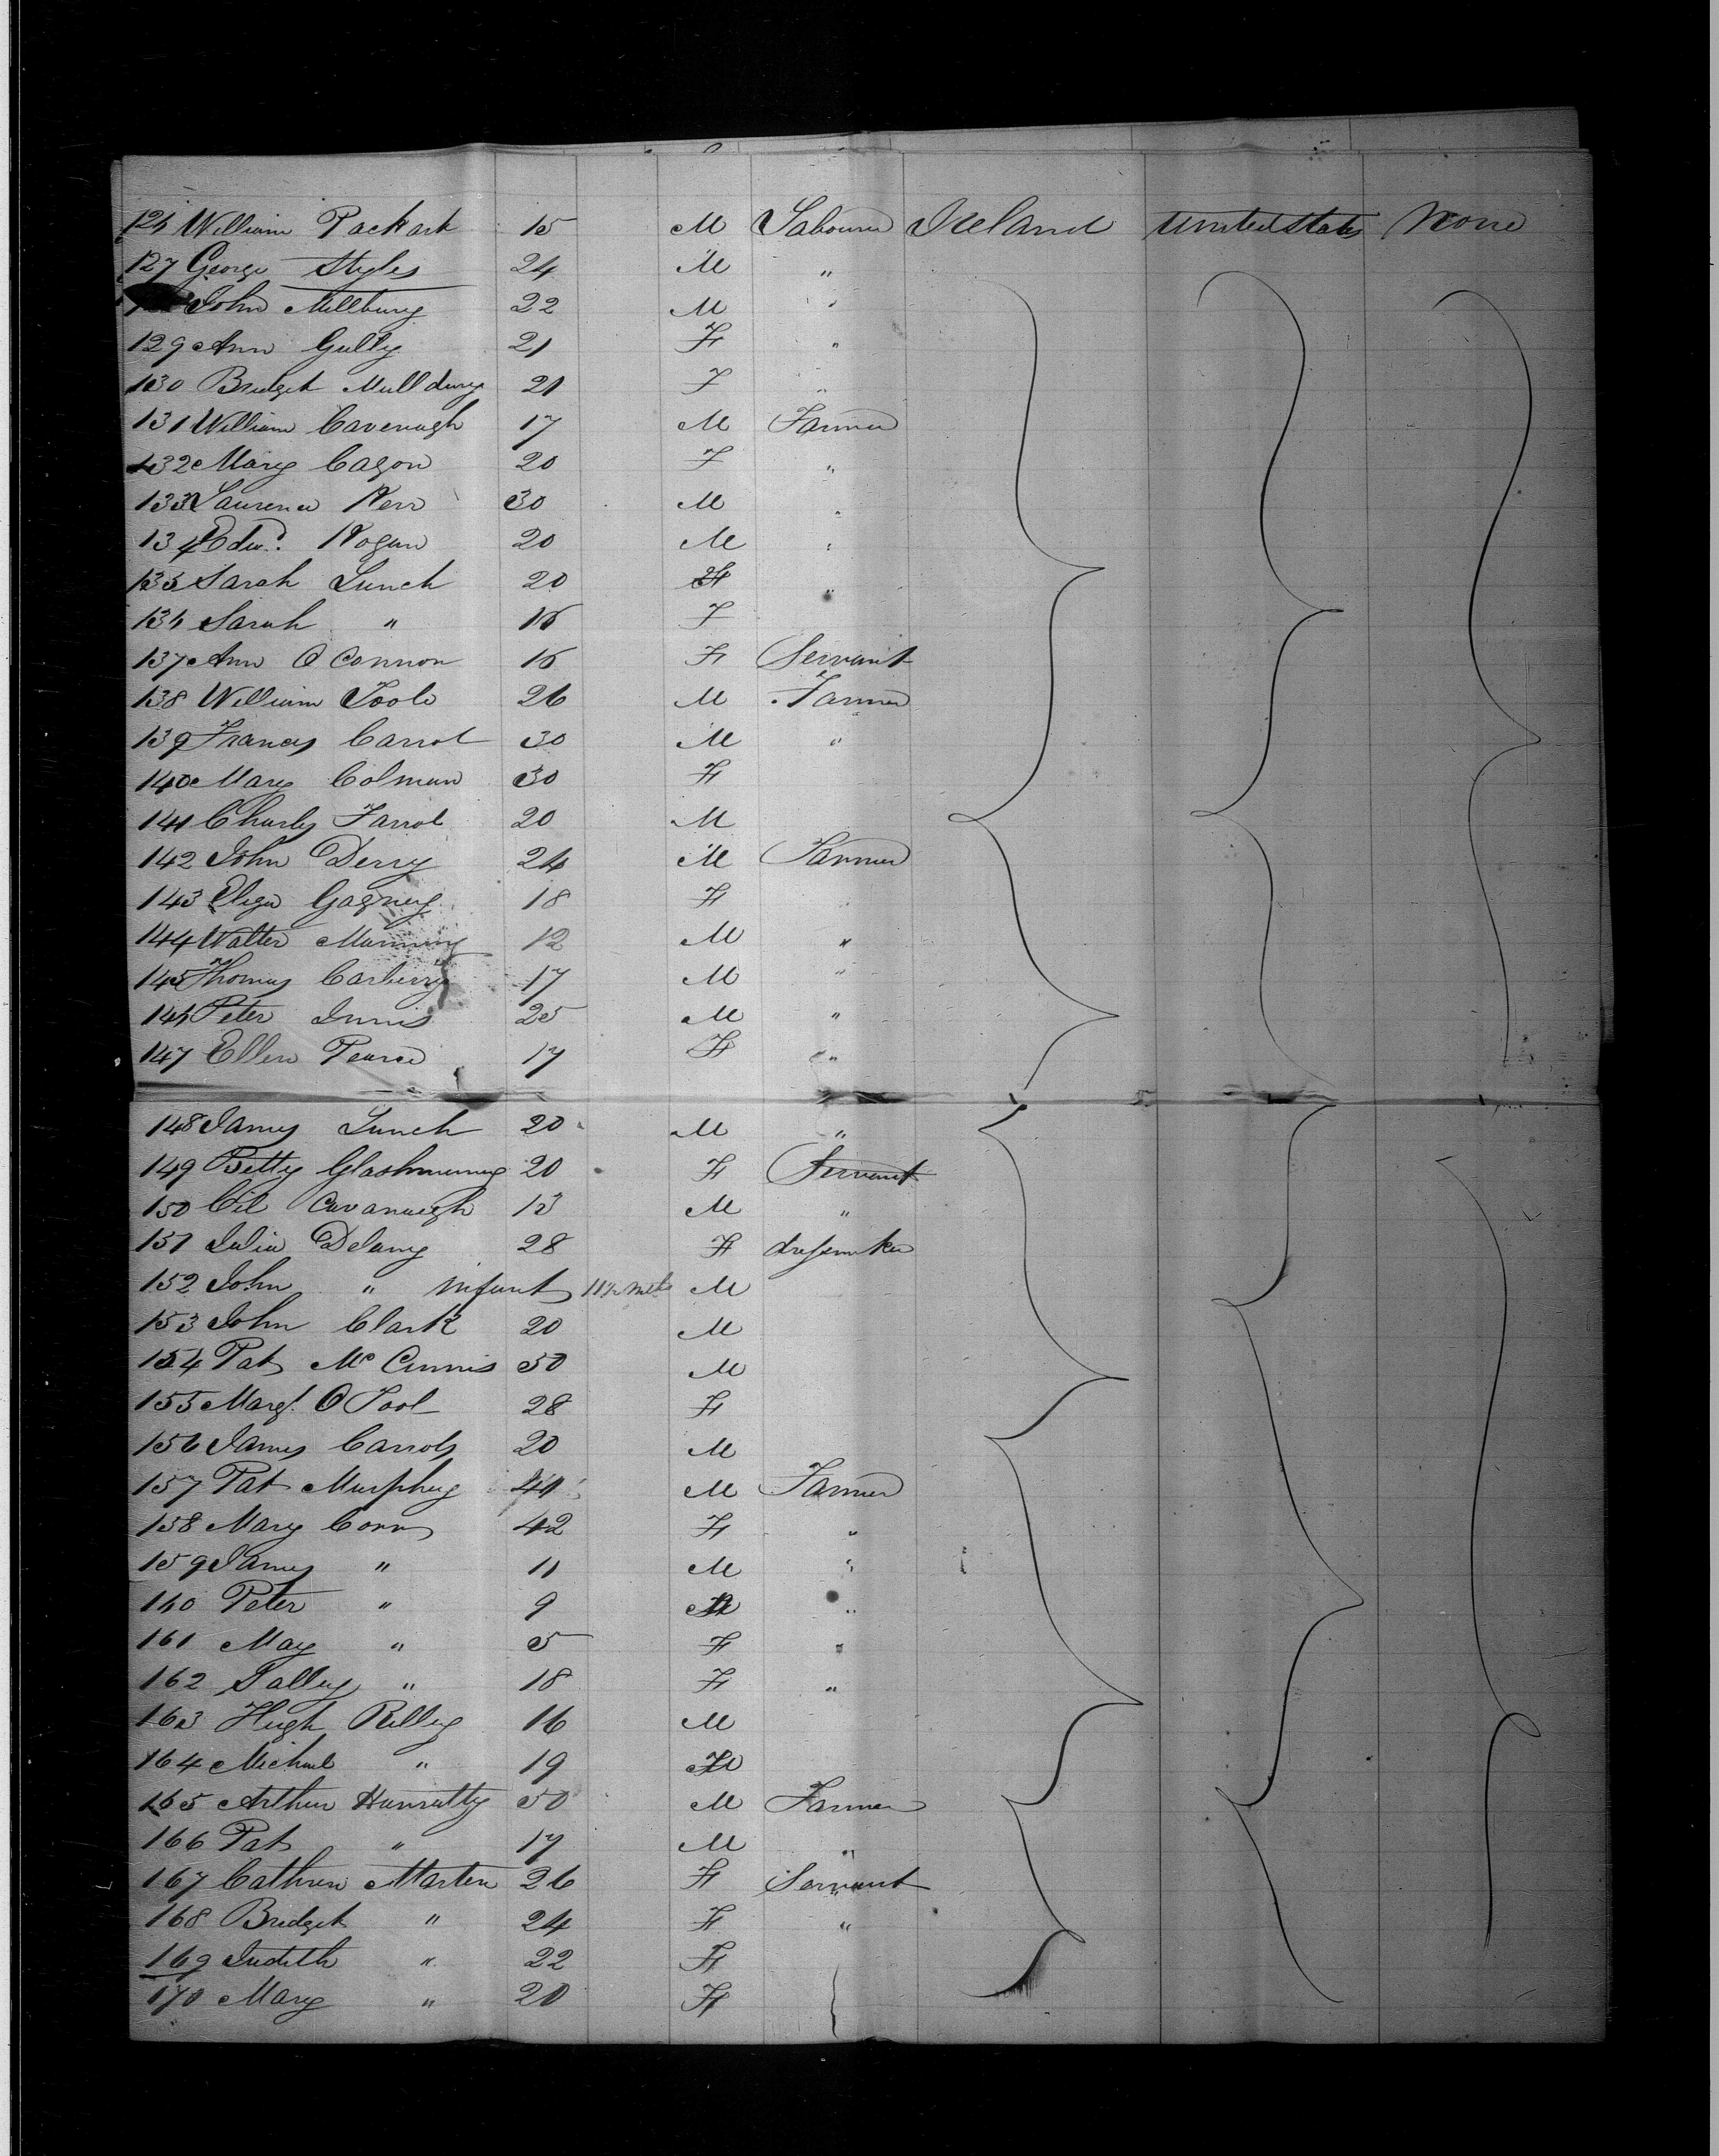 126 William Packart 15 M Labourer Ireland United States None
127 George Styles 24 M "
John Millbury 22 M "
129 Ann Gully 21 F "
130 Bridget Mulldury 21 F "
131 William Cavenagh 17 M Farmer
132 Mary Cagon 20 F "
133 Laurence Kerr 30 M "
134 Edwd. Hogan 20 M "
135 Sarah Lynch 20 F "
136 Sarah " 16 F
137 Ann O Connor 16 F Servant
138 William Toole 26 M Farmer
139 Francis Carrol 30 M "
140 Mary Colman 30 F
141 Charly Farrol 20 M
142 John Derry 24 M Farmer
143 Eliza Gagney 18 F "
144 Walter Manning 12 M "
145 Thomas Carberry 17 M "
146 Peter Innis 25 M "
147 Ellen Pearce 17 F "
148 James Lynch 20 M "
149 Betty 20 F Servant
150 Cavanaugh 13 M "
151 Julia Delany 28 F dressmaker
152 John " infant 11½ mths M
153 John Clark 20 M
154 Pat Mc Cinnis 50 M
155 Margt. O Tool 28 F
156 James Carrols 20 M
157 Pat Murphy 41 M Farmer
158 Mary Corr 42 F "
159 James " 11 M "
160 Peter " 9 M "
161 May " 5 F "
162 Salley " 18 F "
163 Hugh Rilley 16 M
164 Michael " 19 M
165 Arthur Hanratty 50 M Farmer
166 Pat " 17 M "
167 Cathren Marten 26 F Servant
168 Bridget " 24 F "
169 Judith " 22 F
170 Mary " 20 F